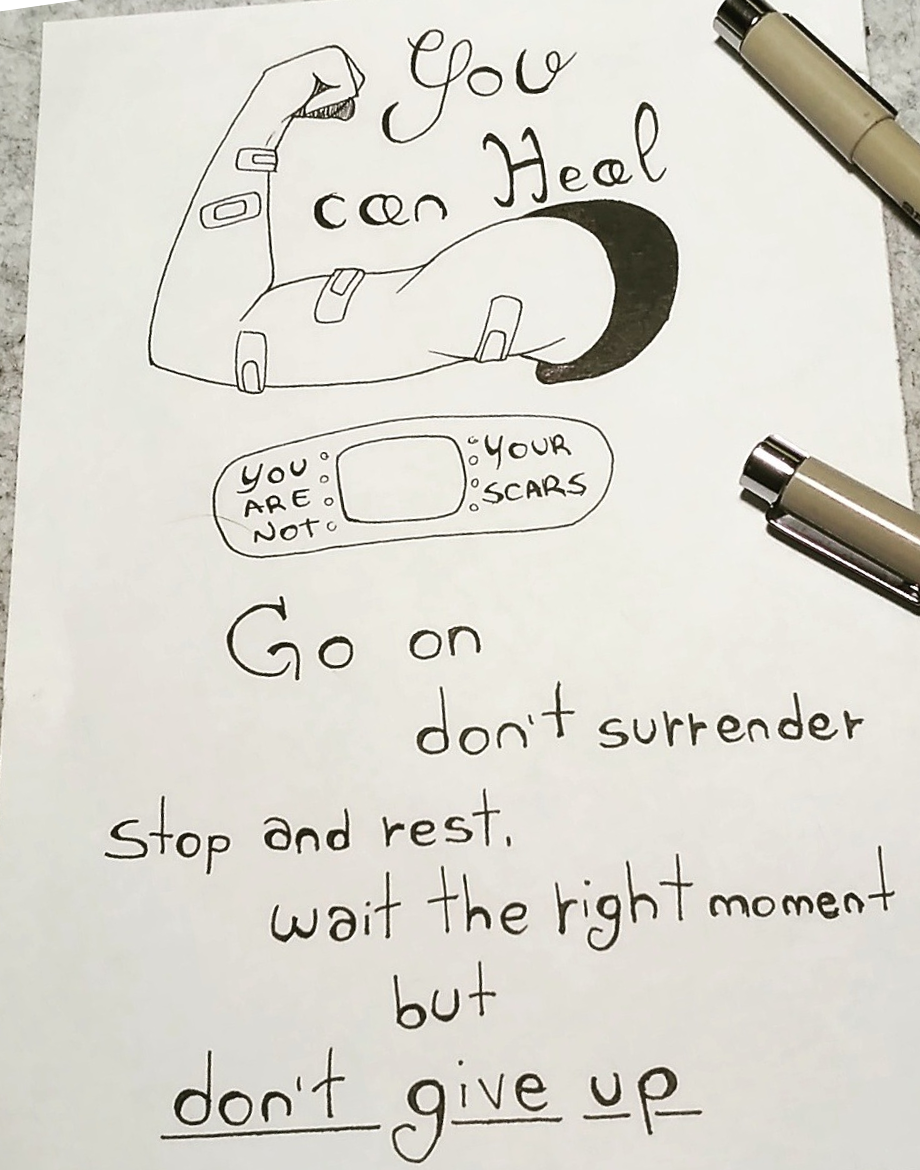 You
can Heal
YOU
ARE
NOT
YOUR
SCARS
Go on
don't surrender
stop and rest.
wait the right moment
but
don't give up